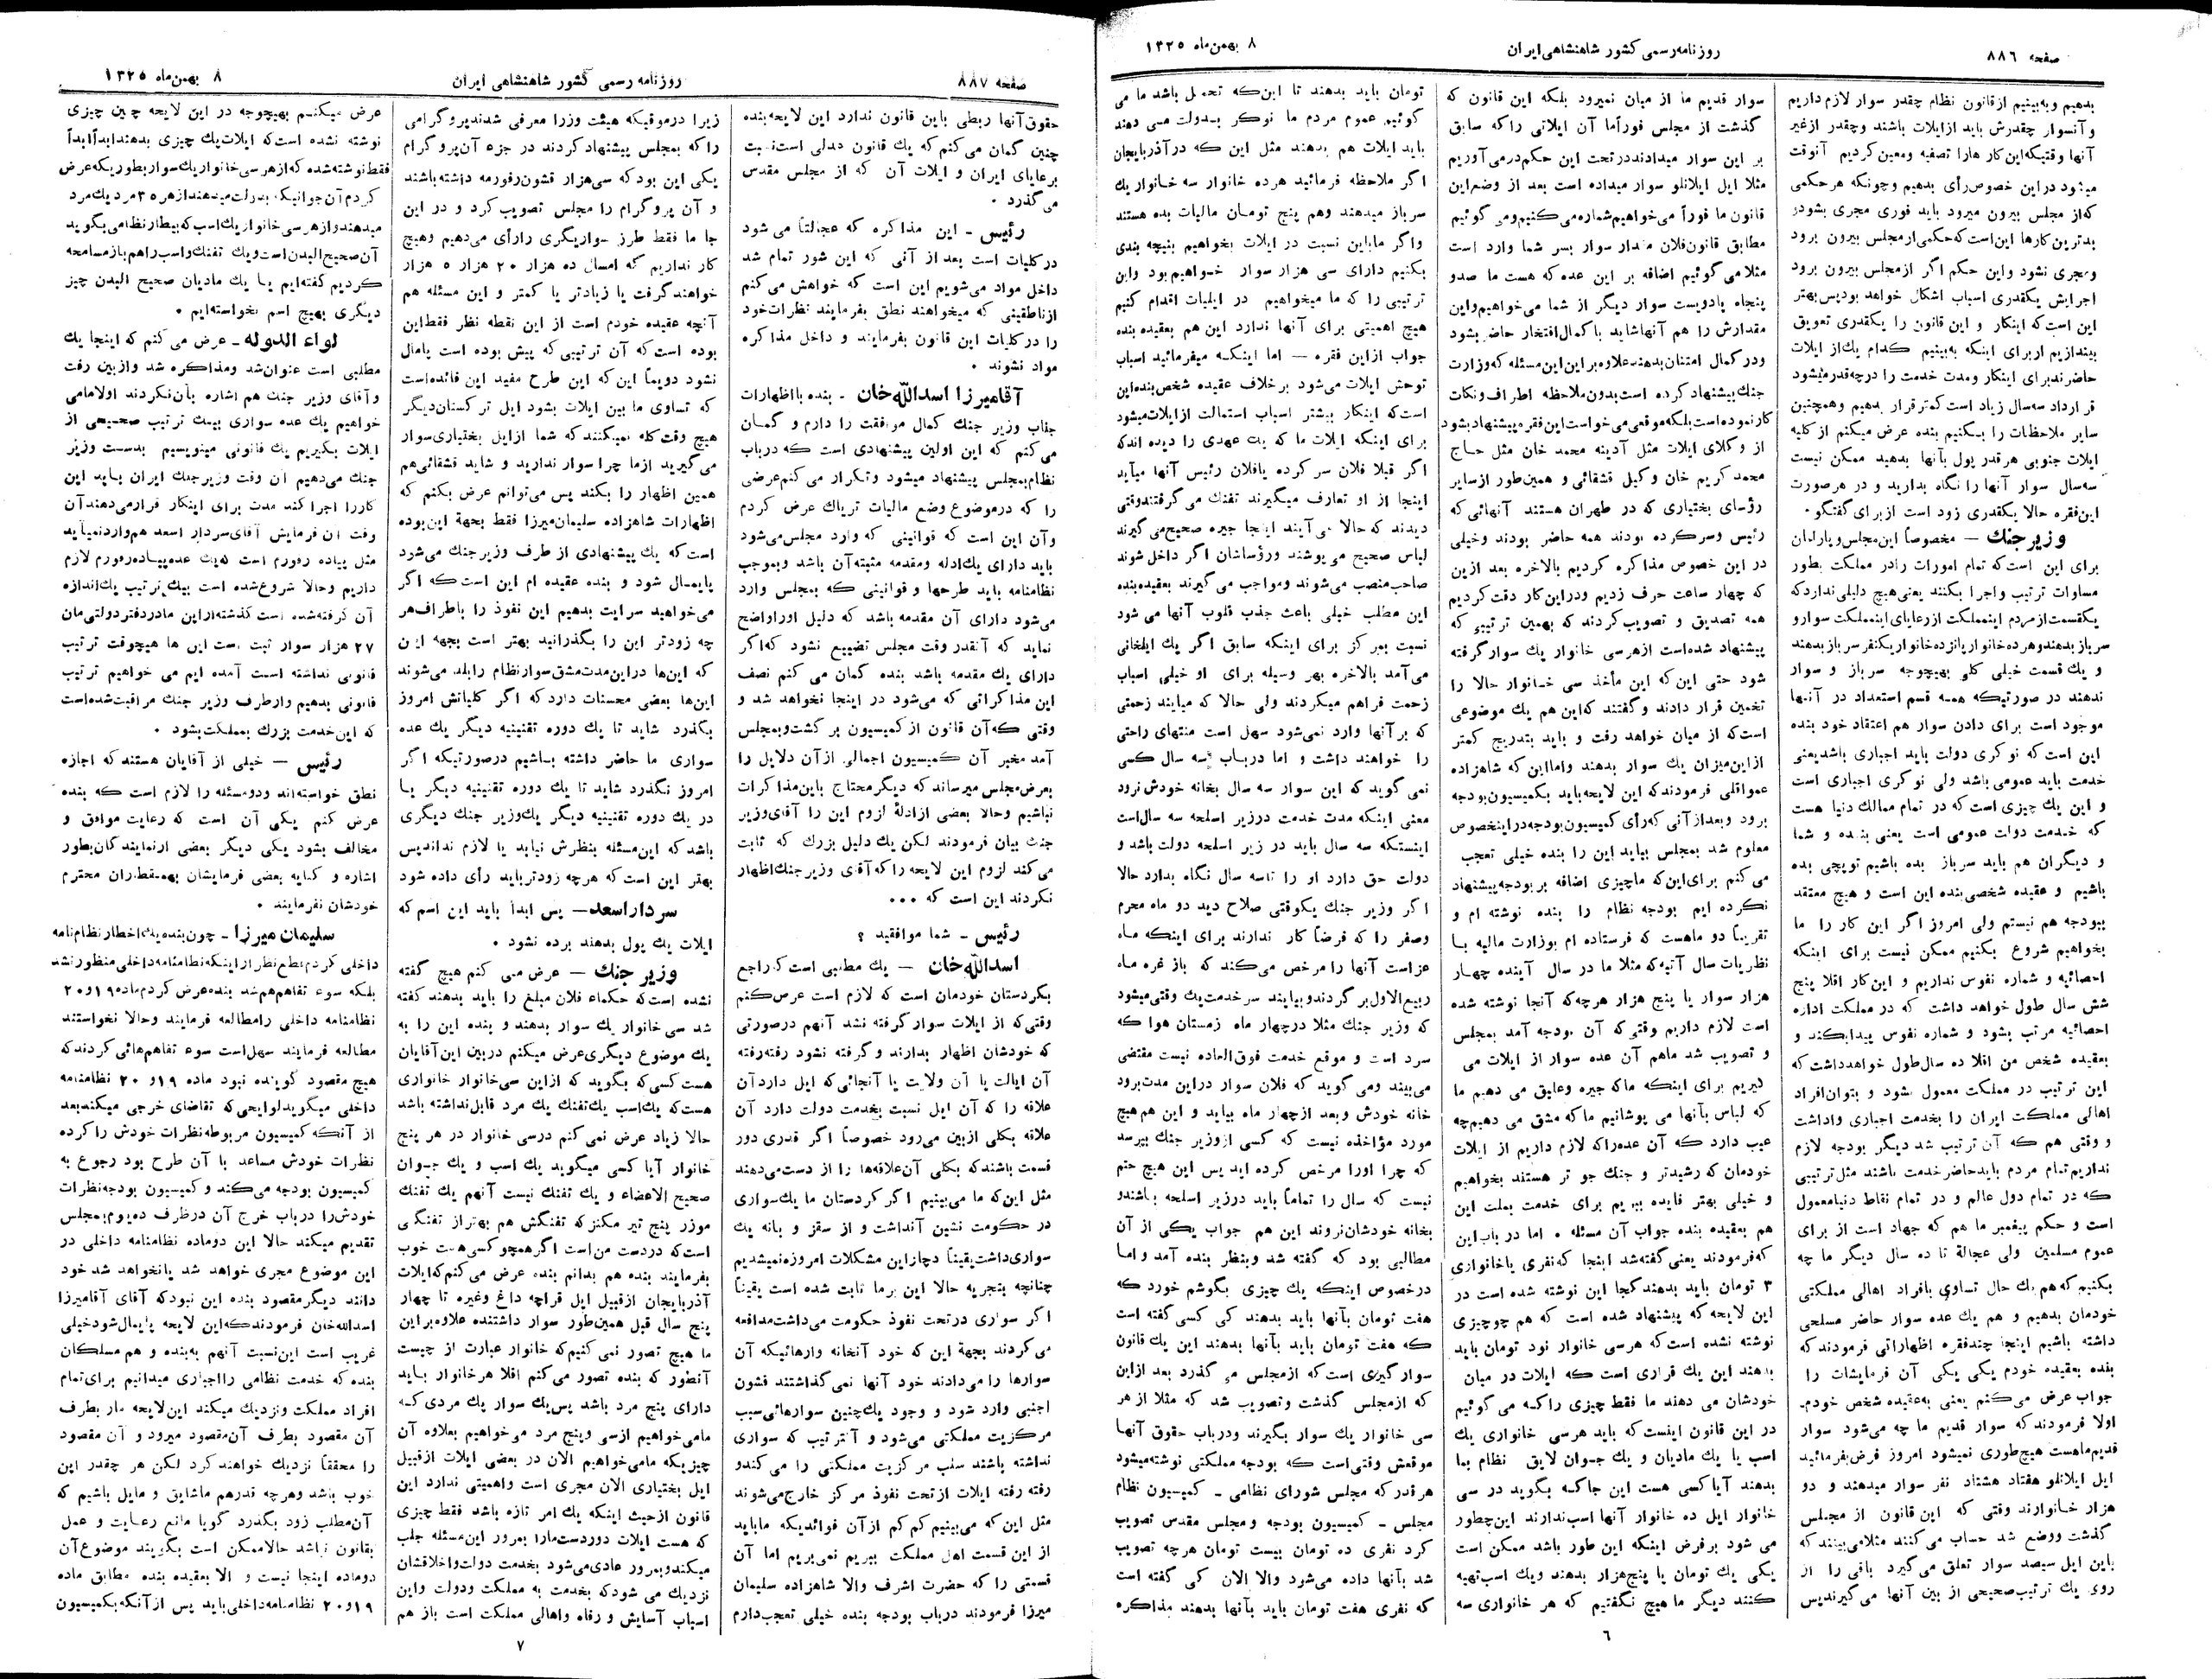 صفحه ۸۸۶
روزنامه رسمی کشور شاهنشاهی ایران
۸ بهمن‌ماه ۱۳۲۵
بدهیم وبه‌بینیم ازقانون نظام چقدر سوار لازم داریم
و آنسوار چقدرش باید ازایلات باشند وچقدر ازغیر
آنها وقتیکه‌این کار هارا تصفیه ومعین کردیم آنوقت
میشود دراین خصوص رأی بدهیم وچونکه هرحکمی
که‌از مجلس بیرون میرود باید فوری مجری بشود و
بدترین کارها این‌است که‌حکمی ازمجلس بیرون برود
ومجری نشود واین حکم اگر ازمجلس بیرون برود
اجرایش یکقدری اسباب اشکال خواهد بود پس بهتر
این است که اینکار و این قانون را یکقدری تعویق
بیندازیم ازبرای اینکه به‌بینیم کدام یك‌از ایلات
حاضرند برای اینکار ومدت خدمت را درچه‌قدر میشود
قرارداد سه‌سال زیاد است کمتر قرار بدهیم وهمچنین
سایر ملاحظات را بکنیم بنده عرض میکنم از کلیه
ایلات جنوبی هرقدر پول بآنها بدهید ممکن نیست
سه‌سال سوار آنها را نگاه بدارید و در هرصورت
این‌فقره حالا یکقدری زود است ازبرای گفتگو.
وزیرجنك — مخصوصاً این‌مجلس وپارلمان
برای این است‌که تمام امورات رادر مملکت بطور
مساوات ترتیب واجرا بکنند یعنی‌هیچ دلیلی نداردکه
یکقسمت‌از مردم اینمملکت ازرعایای اینمملکت سوارو
سرباز بدهندوهرده‌خانوار پانزده‌خانوار یکنفر سرباز بدهند
و یك قسمت خیلی کلی بهیچوجه سرباز و سوار
ندهند در صورتیکه همه قسم استعداد در آنها
موجود است برای دادن سوار هم اعتقاد خود بنده
این است که نوکری دولت باید اجباری باشد یعنی
خدمت باید عمومی باشد ولی نوکری اجباری است
و این یك چیزی است که در تمام ممالك دنیا هست
که خدمت دولت عمومی است یعنی بنده و شما
و دیگران هم باید سرباز بده باشیم توپچی بده
باشیم و عقیده شخصی‌بنده این است و هیچ معتقد
ببودجه هم نیستم ولی امروز اگر این کار را ما
بخواهیم شروع بکنیم ممکن نیست برای اینکه
احصائیه و شماره نفوس نداریم و این‌کار اقلا پنج
شش سال طول خواهد داشت که در مملکت اداره
احصائیه مرتب بشود و شماره نفوس پیدا بکند و
بعقیده شخص من اقلا ده سال‌طول خواهدداشت که
این ترتیب در مملکت معمول بشود و بتوان‌افراد
اهالی مملکت ایران را بخدمت اجباری واداشت
و وقتی هم که آن‌ترتیب شد دیگر بودجه لازم
نداریم‌تمام مردم بایدحاضرخدمت باشند مثل‌ترتیبی
که در تمام دول عالم و در تمام نقاط دنیامعمول
است و حکم پیغمبر ما هم که جهاد است از برای
عموم مسلمین ولی عجالة تا ده سال دیگر ما چه
بکنیم که هم یك حال تساوی بافراد اهالی مملکتی
خودمان بدهیم و هم یك عده سوار حاضر مسلحی
داشته باشیم اینجا چندفقره اظهاراتی فرمودند که
بنده بعقیده خودم یکی یکی آن فرمایشات را
جواب عرض می‌کنم یعنی به‌عقیده شخص خودم.
اولا فرمودند که سوار قدیم ما چه می‌شود سوار
قدیم‌ماهست هیچ‌طوری نمیشود امروز فرض‌بفرمائید
ایل ایلانلو هفتاد هشتاد نفر سوار میدهند و دو
هزار خانوارند وقتی که این قانون از مجلس
گذشت ووضع شد حساب می‌کنند مثلامی‌بینند که
باین ایل سیصد سوار تعلق می‌گیرد باقی را از
روی یك ترتیب‌صحیحی از بین آنها می‌گیرندپس
سوار قدیم ما از میان نمیرود بلکه این قانون که
گذشت از مجلس فوراًما آن ایلاتی راکه سابق
بر این سوار میدادنددرتحت این حکم‌درمی‌آوریم
مثلا ایل ایلانلو سوار میداده است بعد از وضع‌این
قانون ما فوراً می‌خواهیم‌شماره‌می‌کنیم‌ومی گوئیم
مطابق قانون‌فلان مقدار سوار بسر شما وارد است
مثلا می‌گوئیم اضافه بر این عده که هست ما صدو
پنجاه یادویست سوار دیگر از شما می‌خواهیم‌واین
مقدارش را هم آنهاشاید باکمال‌افتخار حاضر بشود
ودر کمال امتنان‌بدهند علاوه‌بر این‌این‌مسئله که‌وزارت
جنك پیشنهاد کرده است بدون‌ملاحظه اطراف ونکات
کارنبوده‌است‌بلکه‌موقعی می‌خواست‌این‌فقره‌پیشنهاد بشود
از وکلای ایلات مثل آدینه محمد خان مثل حاج
محمد کریم خان وکیل قشقائی و همین‌طور ازسایر
رؤسای بختیاری که در طهران هستند آنهائی که
رئیس وسرکرده بودند همه حاضر بودند وخیلی
در این خصوص مذاکره کردیم بالاخره بعد ازین
که چهار ساعت حرف زدیم ودراین کار دقت کردیم
همه تصدیق و تصویب کردند که بهمین ترتیبی که
پیشنهاد شده‌است ازهرسی خانوار یك سوار گرفته
شود حتی این که این مأخذ سی خانوار حالا را
تخمین قرار دادند وگفتند که‌این هم یك موضوعی
است‌که از میان خواهد رفت و باید بتدریج کمتر
ازاین‌میزان یك سوار بدهند وامااین که شاهزاده
عمواقلی فرمودندکه این لایحه‌باید بکمیسیون‌بودجه
برود وبعداز آنی که‌رأی کمیسیون‌بودجه دراینخصوص
معلوم شد بمجلس بیاید این را بنده خیلی تعجب
می‌کنم برای‌این‌که ماچیزی اضافه بر بودجه‌پیشنهاد
نکرده ایم بودجه نظام را بنده نوشته ام و
تقریباً دو ماهست که فرستاده ام بوزارت مالیه با
نظریات سال آتیه‌که مثلا ما در سال آینده چهار
هزار سوار یا پنج هزار هرچه‌که آنجا نوشته شده
است لازم داریم وقتی‌که آن بودجه آمد بمجلس
و تصویب شد ماهم آن عده سوار از ایلات می
گیریم برای اینکه ماکه جیره وعلیق می دهیم ما
که لباس بآنها می پوشانیم ماکه مشق می دهیم‌چه
عیب دارد که آن عده‌راکه لازم داریم از ایلات
خودمان که رشیدتر و جنك جو تر هستند بخواهیم
و خیلی بهتر فایده ببریم برای خدمت بملت این
هم بعقیده بنده جواب آن مسئله • اما در باب‌این
که‌فرمودند یعنی گفته‌شد اینجا که‌نفری یاخانواری
۳ تومان باید بدهند کجا این نوشته شده است در
این لایحه‌که پیشنهاد شده است که هم چوچیزی
نوشته نشده است‌که هرسی خانوار نود تومان باید
بدهند این یك قراری است که ایلات در میان
خودشان می دهند ما فقط چیزی راکه می گوئیم
در این قانون اینست که باید هرسی خانواری یك
اسب یا یك مادیان و یك جوان لایق نظام بما
بدهند آیاکسی هست این جاکه بگوید در سی
خانوار ایل ده خانوار آنها اسب‌ندارند این‌چطور
می شود برفرض اینکه این طور باشد ممکن است
یکی یك تومان یا پنج‌هزار بدهند ویك اسب‌تهیه
کنند دیگر ما هیچ نگفتیم که هر خانواری سه
تومان باید بدهند تا این‌که تحمیل باشد ما می
گوئیم عموم مردم ما نوکر بدولت می دهند
باید ایلات هم بدهند مثل این که درآذربایجان
اگر ملاحظه فرمائید هرده خانوار سه خانوار یك
سرباز میدهند وهم پنج تومان مالیات بده هستند
واگر ماباین نسبت در ایلات بخواهیم بنیچه بندی
بکنیم دارای سی هزار سوار خواهیم‌بود واین
ترتیبی را که ما میخواهیم در ایلیات اقدام کنیم
هیچ اهمیتی برای آنها ندارد این هم بعقیده بنده
جواب ازاین فقره — اما اینکه میفرمائید اسباب
توحش ایلات می‌شود برخلاف عقیده شخص‌بنده‌این
است‌که اینکار بیشتر اسباب استمالت ازایلات‌میشود
برای اینکه ایلات ما که یك عهدی را دیده اندکه
اگر قبلا فلان سرکرده یافلان رئیس آنها میآید
اینجا از او تعارف میگیرند تفنك می گرفتندوقتی
دیدند که‌حالا می‌آیند اینجا جیره صحیح‌می‌گیرند
لباس صحیح می‌پوشند ورؤساشان اگر داخل شوند
صاحب‌منصب می‌شوند ومواجب می‌گیرند بعقیده‌بنده
این مطلب خیلی باعث جذب قلوب آنها می شود
نسبت بمرکز برای اینکه سابق اگر یك ایلخانی
می‌آمد بالاخره بهر وسیله برای او خیلی اسباب
زحمت فراهم میکردند ولی حالا که میایند زحمتی
که بر آنها وارد نمی‌شود سهل است منتهای راحتی
را خواهند داشت و اما درباب سه سال کسی
نمی گوید که این سوار سه سال بخانه خودش‌نرود
معنی اینکه مدت خدمت درزیر اسلحه سه سال‌است
اینستکه سه سال باید در زیر اسلحه دولت باشد و
دولت حق دارد او را تاسه سال نگاه بدارد حالا
اگر وزیر جنك یکوقتی صلاح دید دو ماه محرم
وصفر را که فرضاً کار ندارند برای اینکه ماه
عزاست آنها را مرخص می‌کند که باز غره ماه
ربیع‌الاول‌بر گردندوبیایند سرخدمت‌یك وقتی‌میشود
که وزیر جنك مثلا درچهار ماه زمستان هوا که
سرد است و موقع خدمت فوق‌العاده نیست مقتضی
می‌بیند ومی گوید که فلان سوار دراین مدت‌برود
خانه خودش وبعد ازچهار ماه بیاید و این هم‌هیچ
مورد مؤاخذه نیست که کسی ازوزیر جنك بپرسد
که چرا اورا مرخص کرده اید پس این هیچ حتم
نیست که سال را تماماً باید درزیر اسلحه باشندو
بخانه خودشان‌نروند این هم جواب یکی از آن
مطالبی بود که گفته شد وبنظر بنده آمد واما
درخصوص اینکه یك چیزی بگوشم خورد که
هفت تومان بآنها باید بدهند کی کسی گفته است
که هفت تومان باید بآنها بدهند این یك قانون
سوار گیری است که ازمجلس می گذرد بعد ازاین
که ازمجلس گذشت وتصویب شد که مثلا از هر
سی خانوار یك سوار بگیرند ودرباب حقوق آنها
موقعش وقتی‌است که بودجه مملکتی نوشته‌میشود
هرقدرکه مجلس شورای نظامی ـ کمیسیون نظام
مجلس ـ کمیسیون بودجه ومجلس مقدس تصویب
کرد نفری ده تومان بیست تومان هرچه تصویب
شد بآنها داده می‌شود والا الان کی گفته است
که نفری هفت تومان باید بآنها بدهند مذاکره
٦
صفحه ۸۸۷
روزنامه رسمی کشور شاهنشاهی ایران
۸ بهمن‌ماه ۱۳۲۵
حقوق‌آنها ربطی باین قانون ندارد این لایحه‌بنده
چنین گمان می‌کنم که یك قانون عدلی است‌نسبت
برعایای ایران و ایلات آن که از مجلس مقدس
می‌گذرد .
رئیس ـ این مذاکره که عجالتاً می شود
در کلیات است بعد از آنی که این شور تمام شد
داخل مواد می‌شویم این است که خواهش می کنم
ازناطقینی که میخواهند نطق بفرمایند نظرات‌خود
را درکلیات این قانون بفرمایند و داخل مذاکره
مواد نشوند .
آقامیرزا اسدالله خان ـ بنده بااظهارات
جناب وزیر جنك کمال موافقت را دارم و گمان
می‌کنم که این اولین پیشنهادی است که درباب
نظام‌بمجلس پیشنهاد میشود وتکرار می کنم‌عرضی
را که درموضوع وضع مالیات تریاك عرض کردم
وآن این است که قوانینی که وارد مجلس‌می‌شود
باید دارای یك‌ادله ومقدمه مثبته‌آن باشد وبموجب
نظامنامه باید طرحها و قوانینی که بمجلس وارد
می‌شود دارای آن مقدمه باشد که دلیل اورا واضح
نماید که آنقدر وقت مجلس تضییع نشود که‌اگر
دارای یك مقدمه باشد بنده گمان می کنم نصف
این مذاکراتی که می‌شود در اینجا نخواهد شد و
وقتی که‌آن قانون از کمیسیون برگشت‌وبمجلس
آمد مخبر آن کمیسیون اجمالی ازآن دلایل را
بعرض‌مجلس میرساند که دیگر محتاج باین‌مذاکرات
نباشیم وحالا بعضی ازادلهٔ لزوم این را آقای‌وزیر
جنك بیان فرمودند لکن یك دلیل بزرك که ثابت
می‌کند لزوم این لایحه را که‌آقای وزیر جنك‌اظهار
نکردند این است که ...
رئیس ـ شما موافقید ؟
اسدالله خان — یك مطلبی است که‌راجع
بکردستان خودمان است که لازم است عرض‌کنم
وقتی‌که از ایلات سوار گرفته نشد آنهم درصورتی
که خودشان اظهار بدارند و گرفته نشود رفته‌رفته
آن ایالت یا آن ولایت یا آنجائی‌که ایل داردآن
علاقه را که آن ایل نسبت بخدمت دولت دارد آن
علاقه بکلی ازبین می‌رود خصوصاً اگر قدری دور
قسمت باشندکه بکلی آن‌علاقه‌ها را از دست‌می‌دهند
مثل این‌که ما می‌بینیم اگر کردستان ما یك‌سواری
در حکومت نشین آنداشت و از سقز و بانه یك
سواری‌داشت‌یقیناً دچاراین مشکلات امروزه‌نمیشدیم
چنانچه بتجربه حالا این برما ثابت شده است یقیناً
اگر سواری درتحت نفوذ حکومت می‌داشت‌مدافعه
می‌کردند بجهة این که خود آنخانه وارهائیکه آن
سوارها را می‌دادند خود آنها نمی‌گذاشتند قشون
اجنبی وارد شود و وجود یك‌چنین سوارهائی‌سبب
مرکزیت مملکتی می‌شود و آنترتیب که سواری
نداشته باشند سلب مرکزیت مملکتی را می کندو
رفته رفته ایلات ازتحت نفوذ مرکز خارج‌می‌شوند
مثل این‌که می‌بینیم کم کم ازآن فوائدیکه مابایـد
از این قسمت اهل مملکت ببریم نمی‌بریم اما آن
قسمتی را که حضرت اشرف والا شاهزاده سلیمان
میرزا فرمودند درباب بودجه بنده خیلی تعجب‌دارم
زیرا درموقعیکه هیئت وزرا معرفی شدندپروگرامی
راکه بمجلس پیشنهاد کردند در جزء آن‌پروگرام
یکی این بودکه سی‌هزار قشون‌رفورمه داشته‌باشند
و آن پروگرام را مجلس تصویب کرد و در این
جا ما فقط طرز سوارگیری رارأی می‌دهیم وهیچ
کار نداریم که امسال ده هزار ۲۰ هزار ۵ هزار
خواهند گرفت یا زیادتر یا کمتر و این مسئله هم
آنچه عقیده خودم است از این نقطه نظر فقط‌این
بوده است‌که آن ترتیبی‌که پیش بوده است پامال
نشود دویماً این‌که این طرح مفید این فائده‌است
که تساوی ما بین ایلات بشود ایل ترکستان‌دیگر
هیچ وقت‌گله نمیکنند که شما ازایل بختیاری‌سوار
می‌گیرید ازما چرا سوار ندارید و شاید قشقائی‌هم
همین اظهار را بکند پس می‌توانم عرض بکنم که
اظهارات شاهزاده سلیمان‌میرزا فقط بجهة این‌بوده
است‌که یك پیشنهادی از طرف وزیر جنك می‌شود
پایمال شود و بنده عقیده ام این است‌که اگر
می‌خواهید سرایت بدهیم این نفوذ را باطراف‌هر
چه زودتر این را بگذرانید بهتر است بجهه این
که این‌ها دراین‌مدت‌مشق‌سوارنظام رابلد می‌شوند
این‌ها بعضی محسنات دارد که اگر کلیاتش امروز
بگذرد شاید تا یك دوره تقنینیه دیگر یك عده
سواری ما حاضر داشته باشیم درصورتیکه اگر
امروز نگذرد شاید تا یك دوره تقنینیه دیگر یا
در یك دوره تقنینیه دیگر یك‌وزیر جنك دیگری
باشد که این‌مسئله بنظرش نیاید یا لازم نداندپس
بهتر این است‌که هرچه زودتر باید رأی داده شود
سردار اسعد— پس ابداً باید این اسم که
ایلات یك پول بدهند برده نشود .
وزیر جنك — عرض می کنم هیچ گفته
نشده است‌که حکماء فلان مبلغ را باید بدهند گفته
شد سی خانوار یك سوار بدهند و بنده این را به
یك موضوع دیگری‌عرض میکنم دربین این‌آقایان
هست کسی‌که بگوید که ازاین سی‌خانوار خانواری
هست‌که یك‌اسب یك‌تفنك یك مرد قابل‌نداشته باشد
حالا زیاد عرض نمی کنم درسی خانوار در هر پنج
خانوار آیا کسی میگوید یك اسب و یك جـوان
صحیح الاعضاء و یك تفنك نیست آنهم یك تفنك
موزر پنج تیر مکنز که تفنگش هم بهتر از تفنگی
است‌که دردست من‌است اگر همچو کسی‌هست خوب
بفرمایند بنده هم بدانم بنده عرض می‌کنم‌که‌ایلات
آذربایجان ازقبیل ایل قراچه داغ وغیره تا چهار
پنج سال قبل همین‌طور سوار داشتنده علاوه‌براین
ما هیچ تصور نمی کنیم‌که خانوار عبارت از چیست
آنطور که بنده تصور می‌کنم اقلا هرخانوار بـاید
دارای پنج مرد باشد پس‌یك سوار یك مردی که
مامی‌خواهیم ازسی وپنج مرد می‌خواهیم بعلاوه آن
چیزیکه مامی‌خواهیم الان در بعضی ایلات ازقبیل
ایل بختیاری الان مجری است واهمیتی ندارد این
قانون ازحیث اینکه یك امر تازه باشد فقط چیزی
که هست ایلات دوردست‌مارا بمرور این‌مسئله جلب
میکندوبمرور عادی‌می‌شود بخدمت دولت‌واخلاقشان
نزدیك می شودکه بخدمت به مملکت ودولت واین
اسباب آسایش و رفاه واهالی مملکت است باز هم
عرض میکنم بهیچوجه در این لایحه چنین چیزی
نوشته نشده است‌که ایلات‌یك چیزی بدهندابداًابداً
فقط‌نوشته‌شده که‌ازهر سی‌خانواریك‌سواربطوریکه‌عرض
کردم‌آن‌جوانیکه بدولت میدهندازهر ۳۵ مردیك‌مرد
میدهندوازهر سی‌خانوار یك‌اسب‌که‌بیطارنظامی‌بگوید
آن‌صحیح‌البدن‌است‌ویك تفنك‌واسب‌راهم‌بازمسامحه
کردیم گفته‌ایم یا یك مادیان صحیح البدن چیز
دیگری بهیچ اسم نخواسته‌ایم .
لواء الدوله ـ عرض می کنم که اینجا یك
مطلبی است عنوان‌شد ومذاکره شد وازبین رفت
وآقای وزیر جنك هم اشاره بآن‌نکردند اولامامی
خواهیم یك عده سواری بیك ترتیب صحیحی از
ایلات بگیریم یك قانونی مینویسیم بدست وزیر
جنك می‌دهیم آن وقت وزیرجنك ایران باید این
کاررا اجرا کند مدت برای اینکار قرارمی‌دهندآن
وقت آن فرمایش آقای‌سردار اسعد هم‌واردنمیآید
مثل پیاده رفورم است که‌یك عده‌پیاده‌رفورم لازم
داریم وحالا شروع‌شده است بیك ترتیب یك‌اندازه
آن گرفته‌شده است گذشته‌ازاین مادردفتردولتی‌مان
۲۷ هزار سوار ثبت است این ها هیچوقت ترتیب
قانونی نداشته است آمده ایم می خواهیم ترتیب
قانونی بدهیم وازطرف وزیر جنك مراقبت‌شده‌است
که این‌خدمت بزرك بمملکت‌بشود .
رئیس — خیلی از آقایان هستند که اجازه
نطق خواسته‌اند ودومسئله را لازم است که بنده
عرض کنم یکی آن است که رعایت موافق و
مخالف بشود یکی دیگر بعضی ازنمایندگان‌بطور
اشاره و کنایه بعضی فرمایشان بهمقطاران محترم
خودشان نفرمایند .
سلیمان میرزا ـ چون‌بنده یك‌اخطار نظام‌نامه
داخلی کردم قطع نظر ازاینکه نظامنامه‌داخلی‌منظورنشد
بلکه سوء تفاهم‌هم‌شد بنده‌عرض کردم‌ماده‌۱۹و۲۰
نظامنامه داخلی رامطالعه فرمایند وحالا نخواستند
مطالعه فرمایند سهل‌است سوء تفاهم‌هائی کردندکه
هیچ مقصود گوینده نبود ماده ۱۹و ۲۰ نظامنامه
داخلی میگویدلوایحی‌که تقاضای خرجی میکندبعد
از آنکه کمیسیون مربوطه‌نظرات خودش راکرده
نظرات خودش مساعد با آن طرح بود رجوع به
کمیسیون بودجه می‌کند وکمیسیون بودجه‌نظرات
خودش‌را درباب خرج آن درظرف ده‌یوم‌بمجلس
تقدیم میکند حالا این دوماده نظامنامه داخلی در
این موضوع مجری خواهد شد یانخواهد شد خود
دانند دیگر مقصود بنده این نبودکه آقای آقامیرزا
اسدالله‌خان فرمودندکه‌این لایحه پایمال‌شودخیلی
غریب است این‌نسبت آنهم به‌بنده و هم مسلکان
بنده که خدمت نظامی رااجباری میدانیم برای‌تمام
افراد مملکت ونزدیك میکند این‌لایحه مار بطرف
آن مقصود بطرف آن‌مقصود میرود و آن مقصود
را محققاً نزدیك خواهند کرد لکن هر چقدر این
خوب باشد وهرچه قدرهم ماشایق و مایل باشیم که
آن‌مطلب زود بگذرد گویا مانع رعـایت و عمل
بقانون نباشد حالاممکن است بگویند موضوع‌آن
دوماده اینجا نیست و الا بعقیده بنده مطابق ماده
۱۹و۲۰ نظامنامه‌داخلی‌باید پس ازآنکه‌بکمیسیون
۷